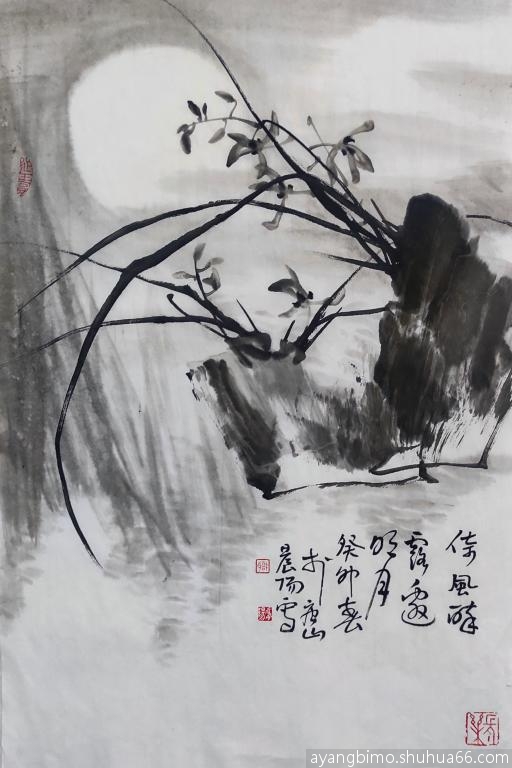 倚風醉
露邀
明月
癸卯春
於唐山
晨阳写
ayangbimo.shuhua66.com